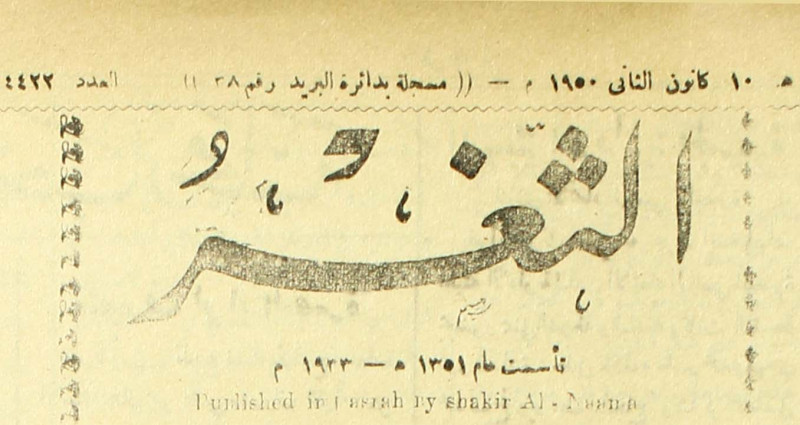 ه ١٠ كانون الثانى ١٩٥٠ م — (( مسجلة بدائرة البريد رقم ١٠٣٨ )) العدد ٤٤٢٢
الثغر
تأسست عام ١٣٥١ ه — ١٩٣٣ م
Published in Basrah By shakir Al - Naama